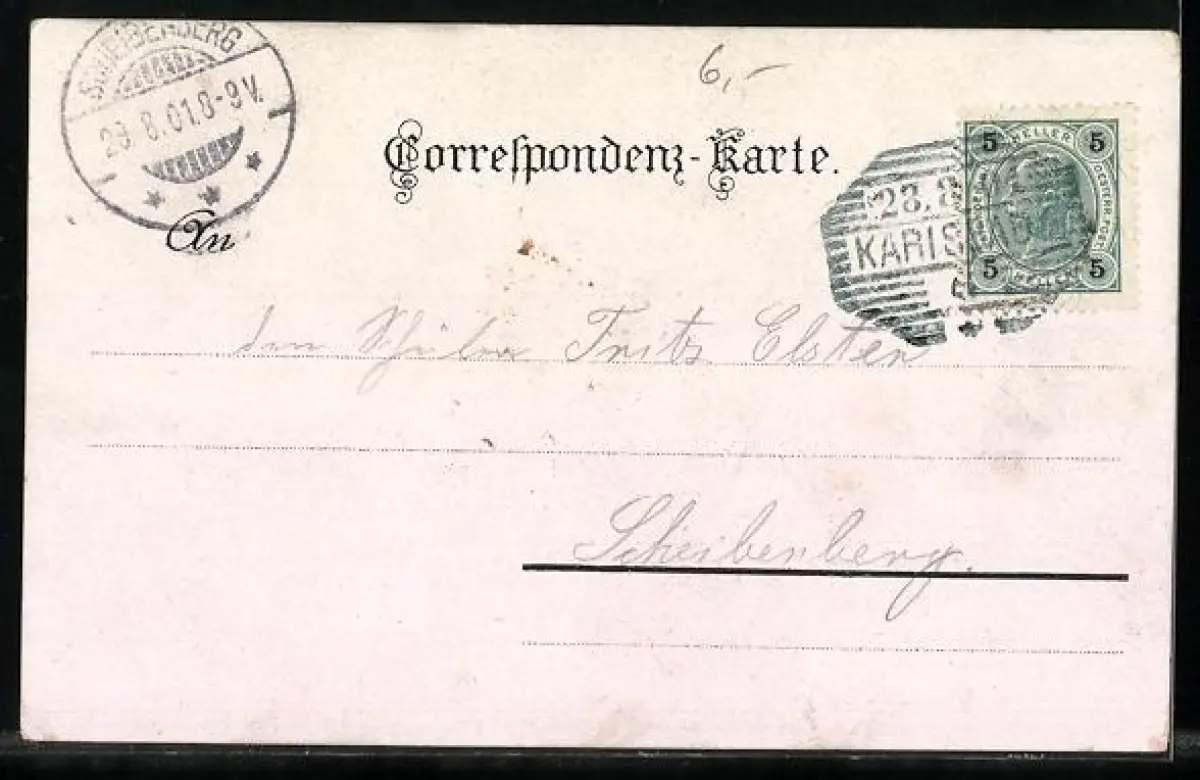 SCHEIBENBERG
29.8.01.8-9V.
6,-
Correspondenz-Karte.
5 HELLER 5
5 HELLER 5
28.8
KARLS
An
den Schüler Fritz Elsten
Scheibenberg.